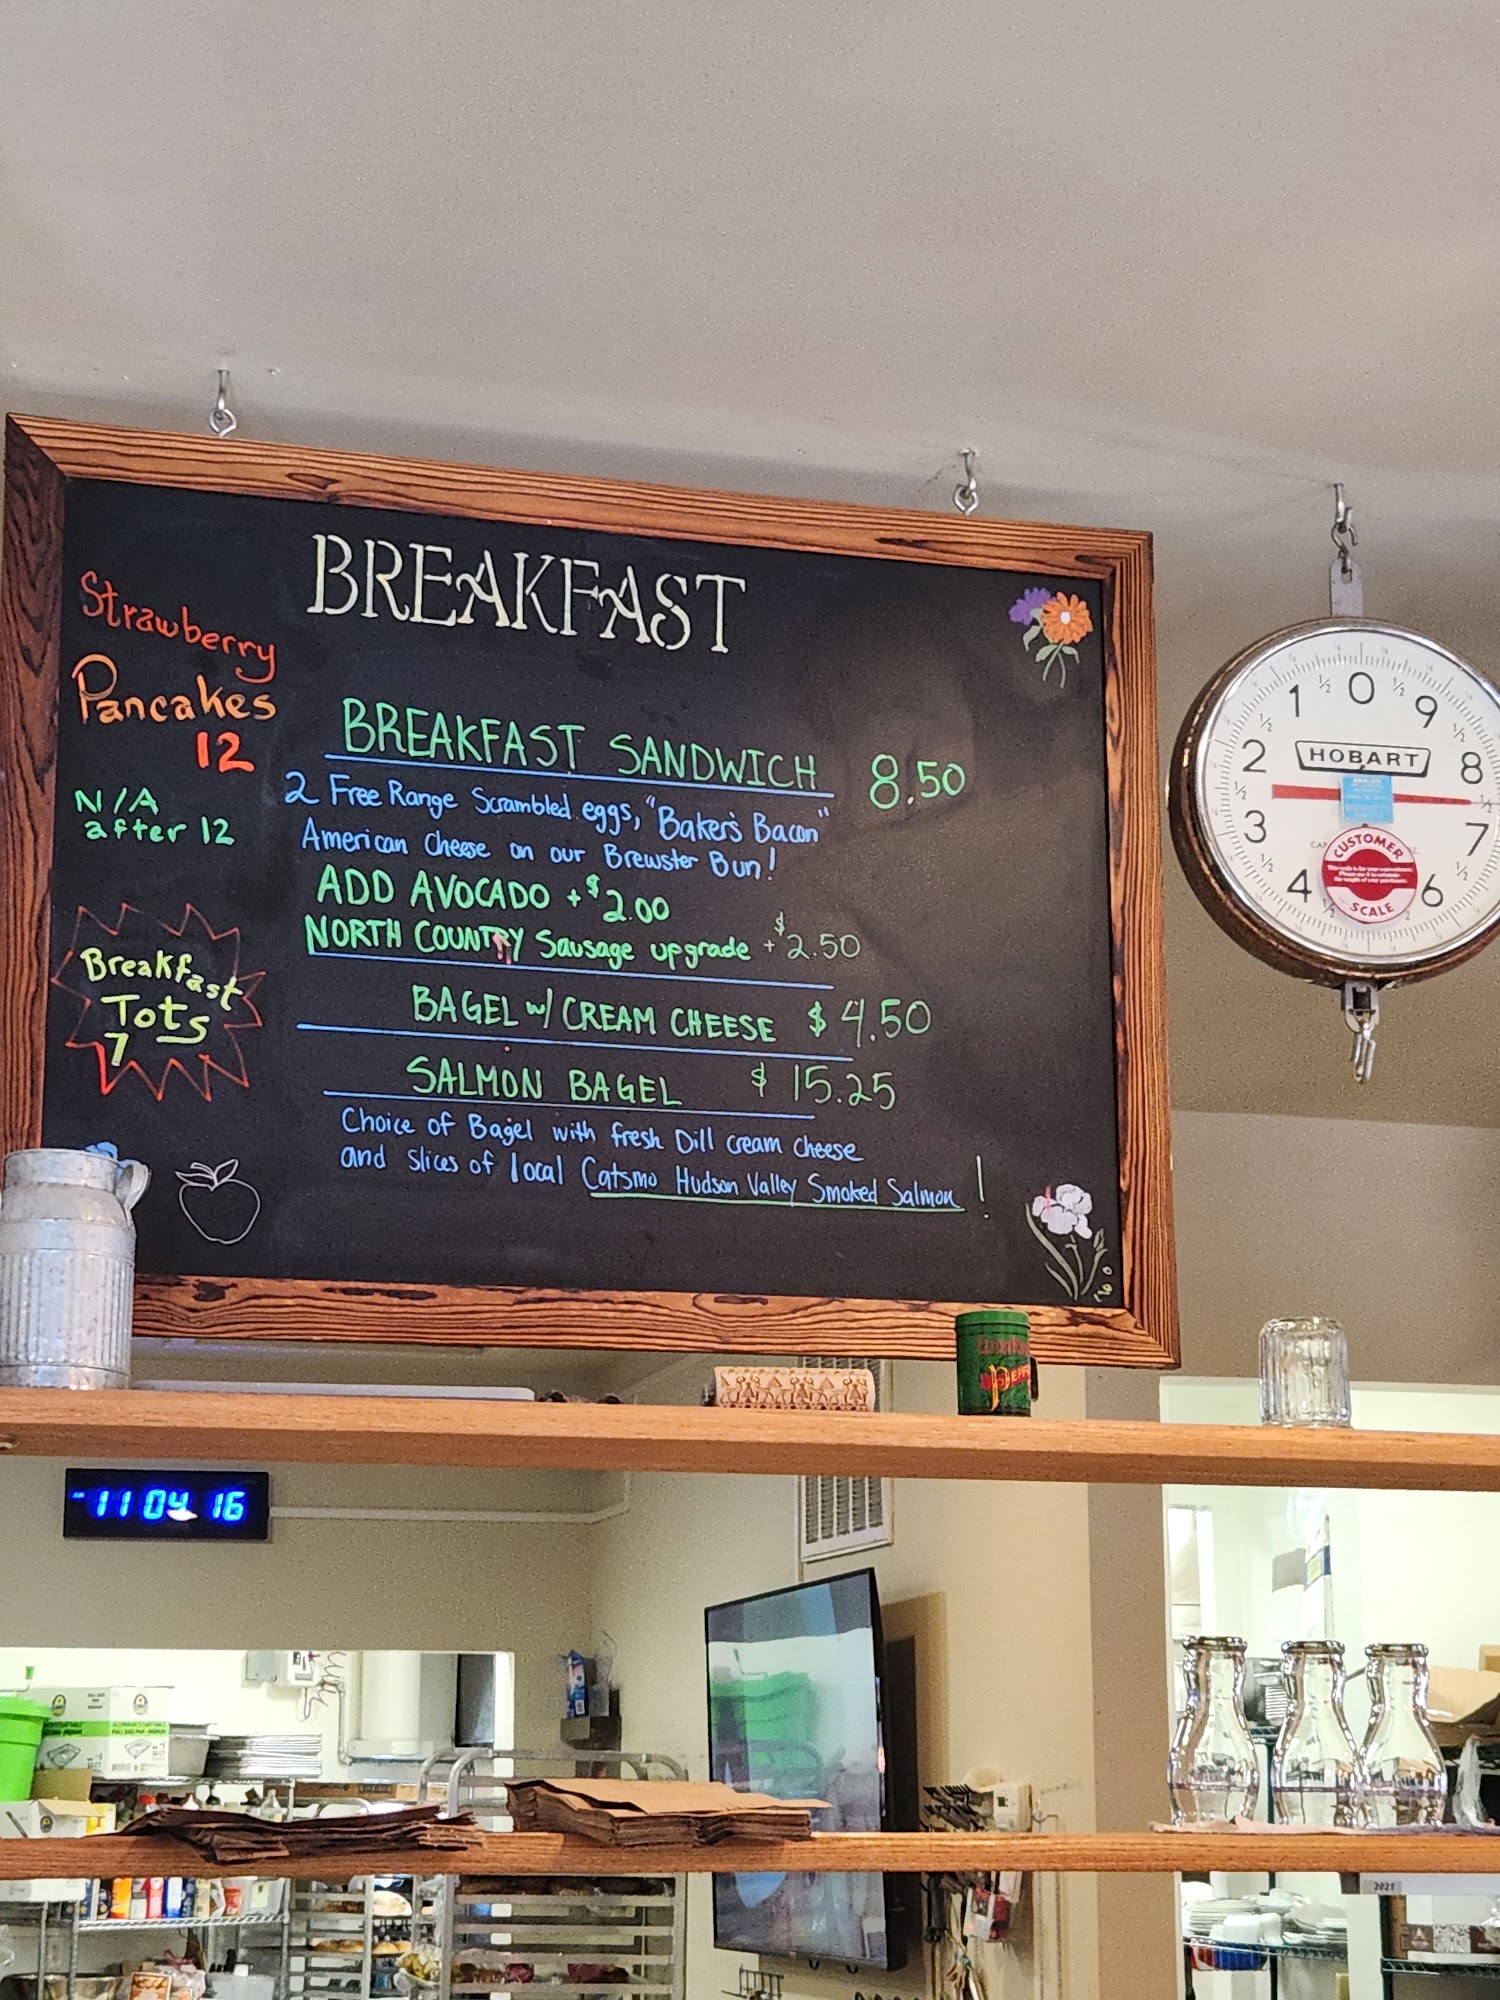 BREAKFAST
Strawberry
Pancakes
12
N/A
after 12
Breakfast
Tots
7
BREAKFAST SANDWICH 8.50
2 Free Range Scrambled eggs, "Baker's Bacon"
American Cheese on our Brewster Bun!
ADD AVOCADO +$2.00
NORTH COUNTRY Sausage upgrade +$2.50
BAGEL w/ CREAM CHEESE $4.50
SALMON BAGEL $15.25
Choice of Bagel with fresh Dill cream cheese
and slices of local Catsmo Hudson Valley Smoked Salmon!
0
1 ½ ½ 9
½
2 8
½ ½
3 7
½ ½
4 6
HOBART
CUSTOMER
SCALE
11 04 16
2021